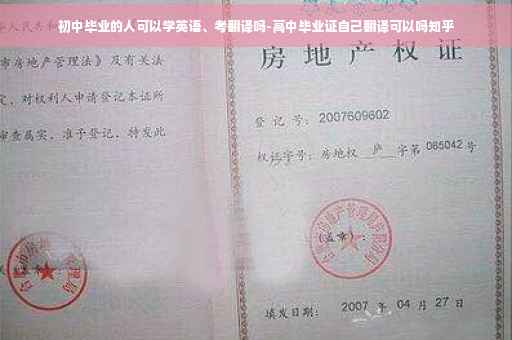 初中毕业的人可以学英语、考翻译吗-高中毕业证自己翻译可以吗知乎
人民共和
市房地产管理法》及有关法
定，对权利人申请登记本证所
审查属实，准予登记，特发此
房地产权
登记号：2007609602
权证字号：房地权 庐 字第 065042 号
(盖章)：
填发日期： 2007 年 04 月 27 日